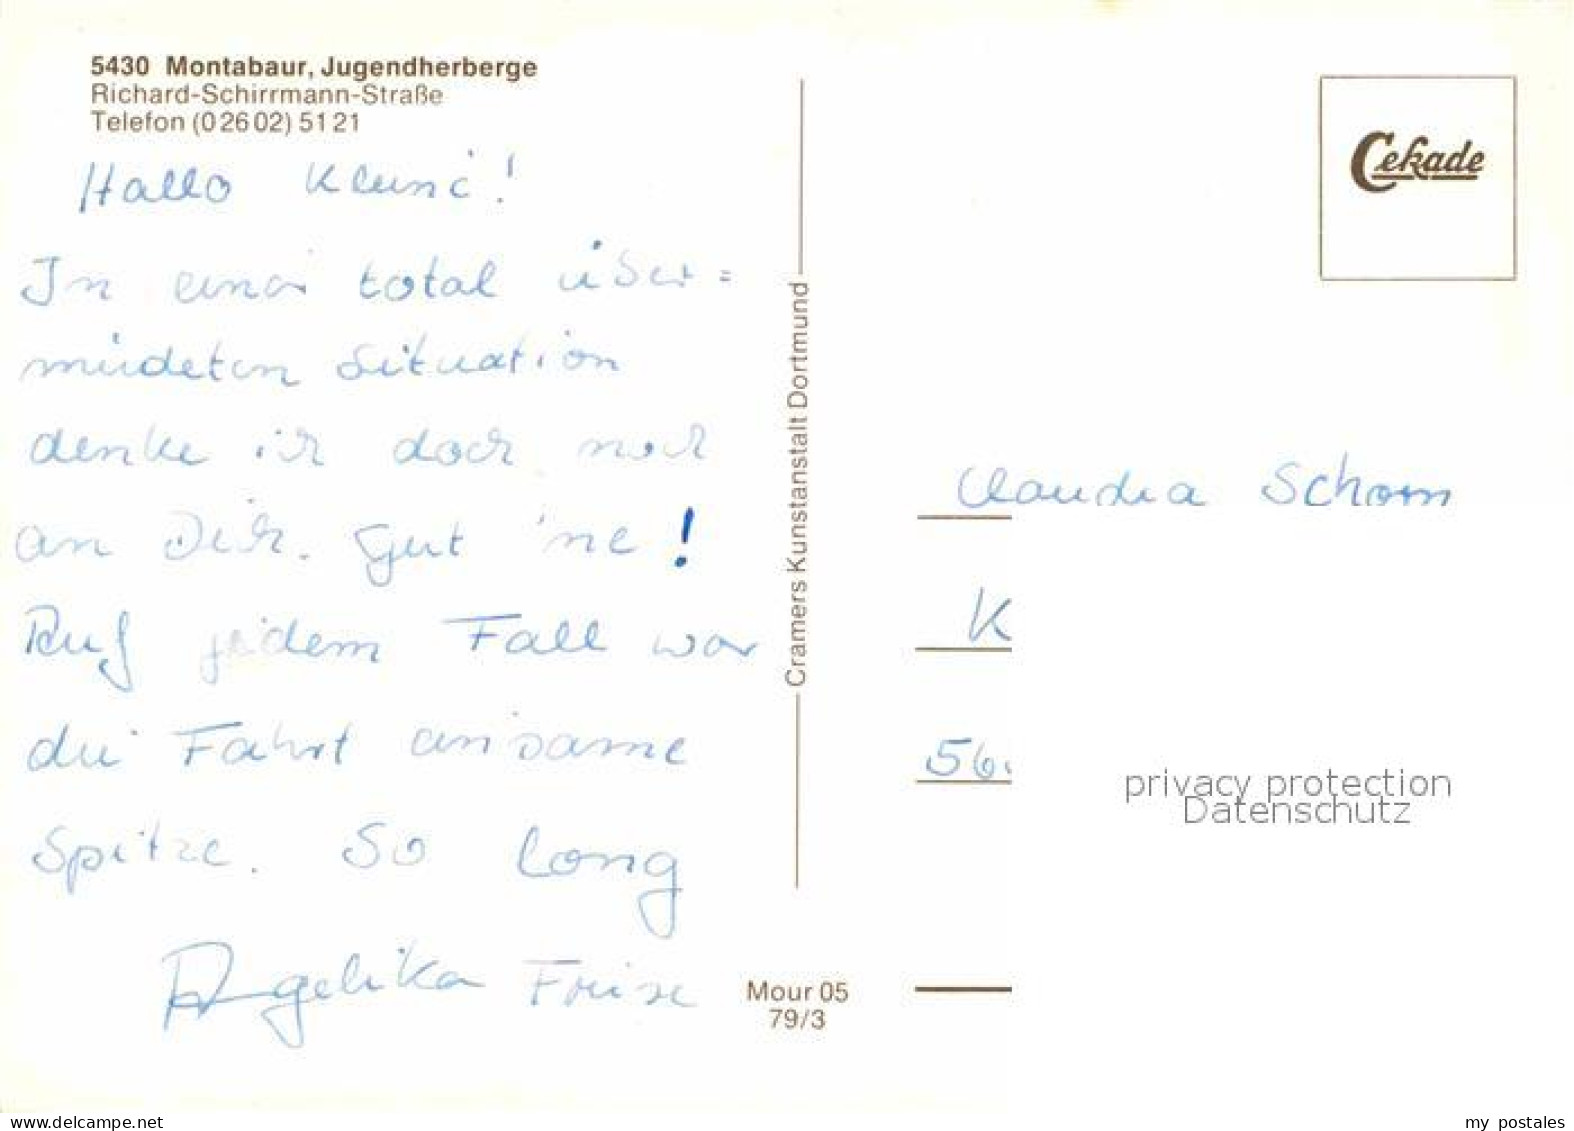 5430 Montabaur, Jugendherberge
Richard-Schirrmann-Straße
Telefon (0 26 02) 51 21
Hallo Kleine!
In einer total über=
müdeten Situation
denke ich doch noch
an Dich. Gut 'ne!
Auf jedem Fall war
die Fahrt einsame
Spitze. So long
Angelika Friese
Cramers Kunstanstalt Dortmund
Mour 05
79/3
Cekade
Claudia Schorn
K
56.
privacy protection
Datenschutz
www.delcampe.net
my_postales